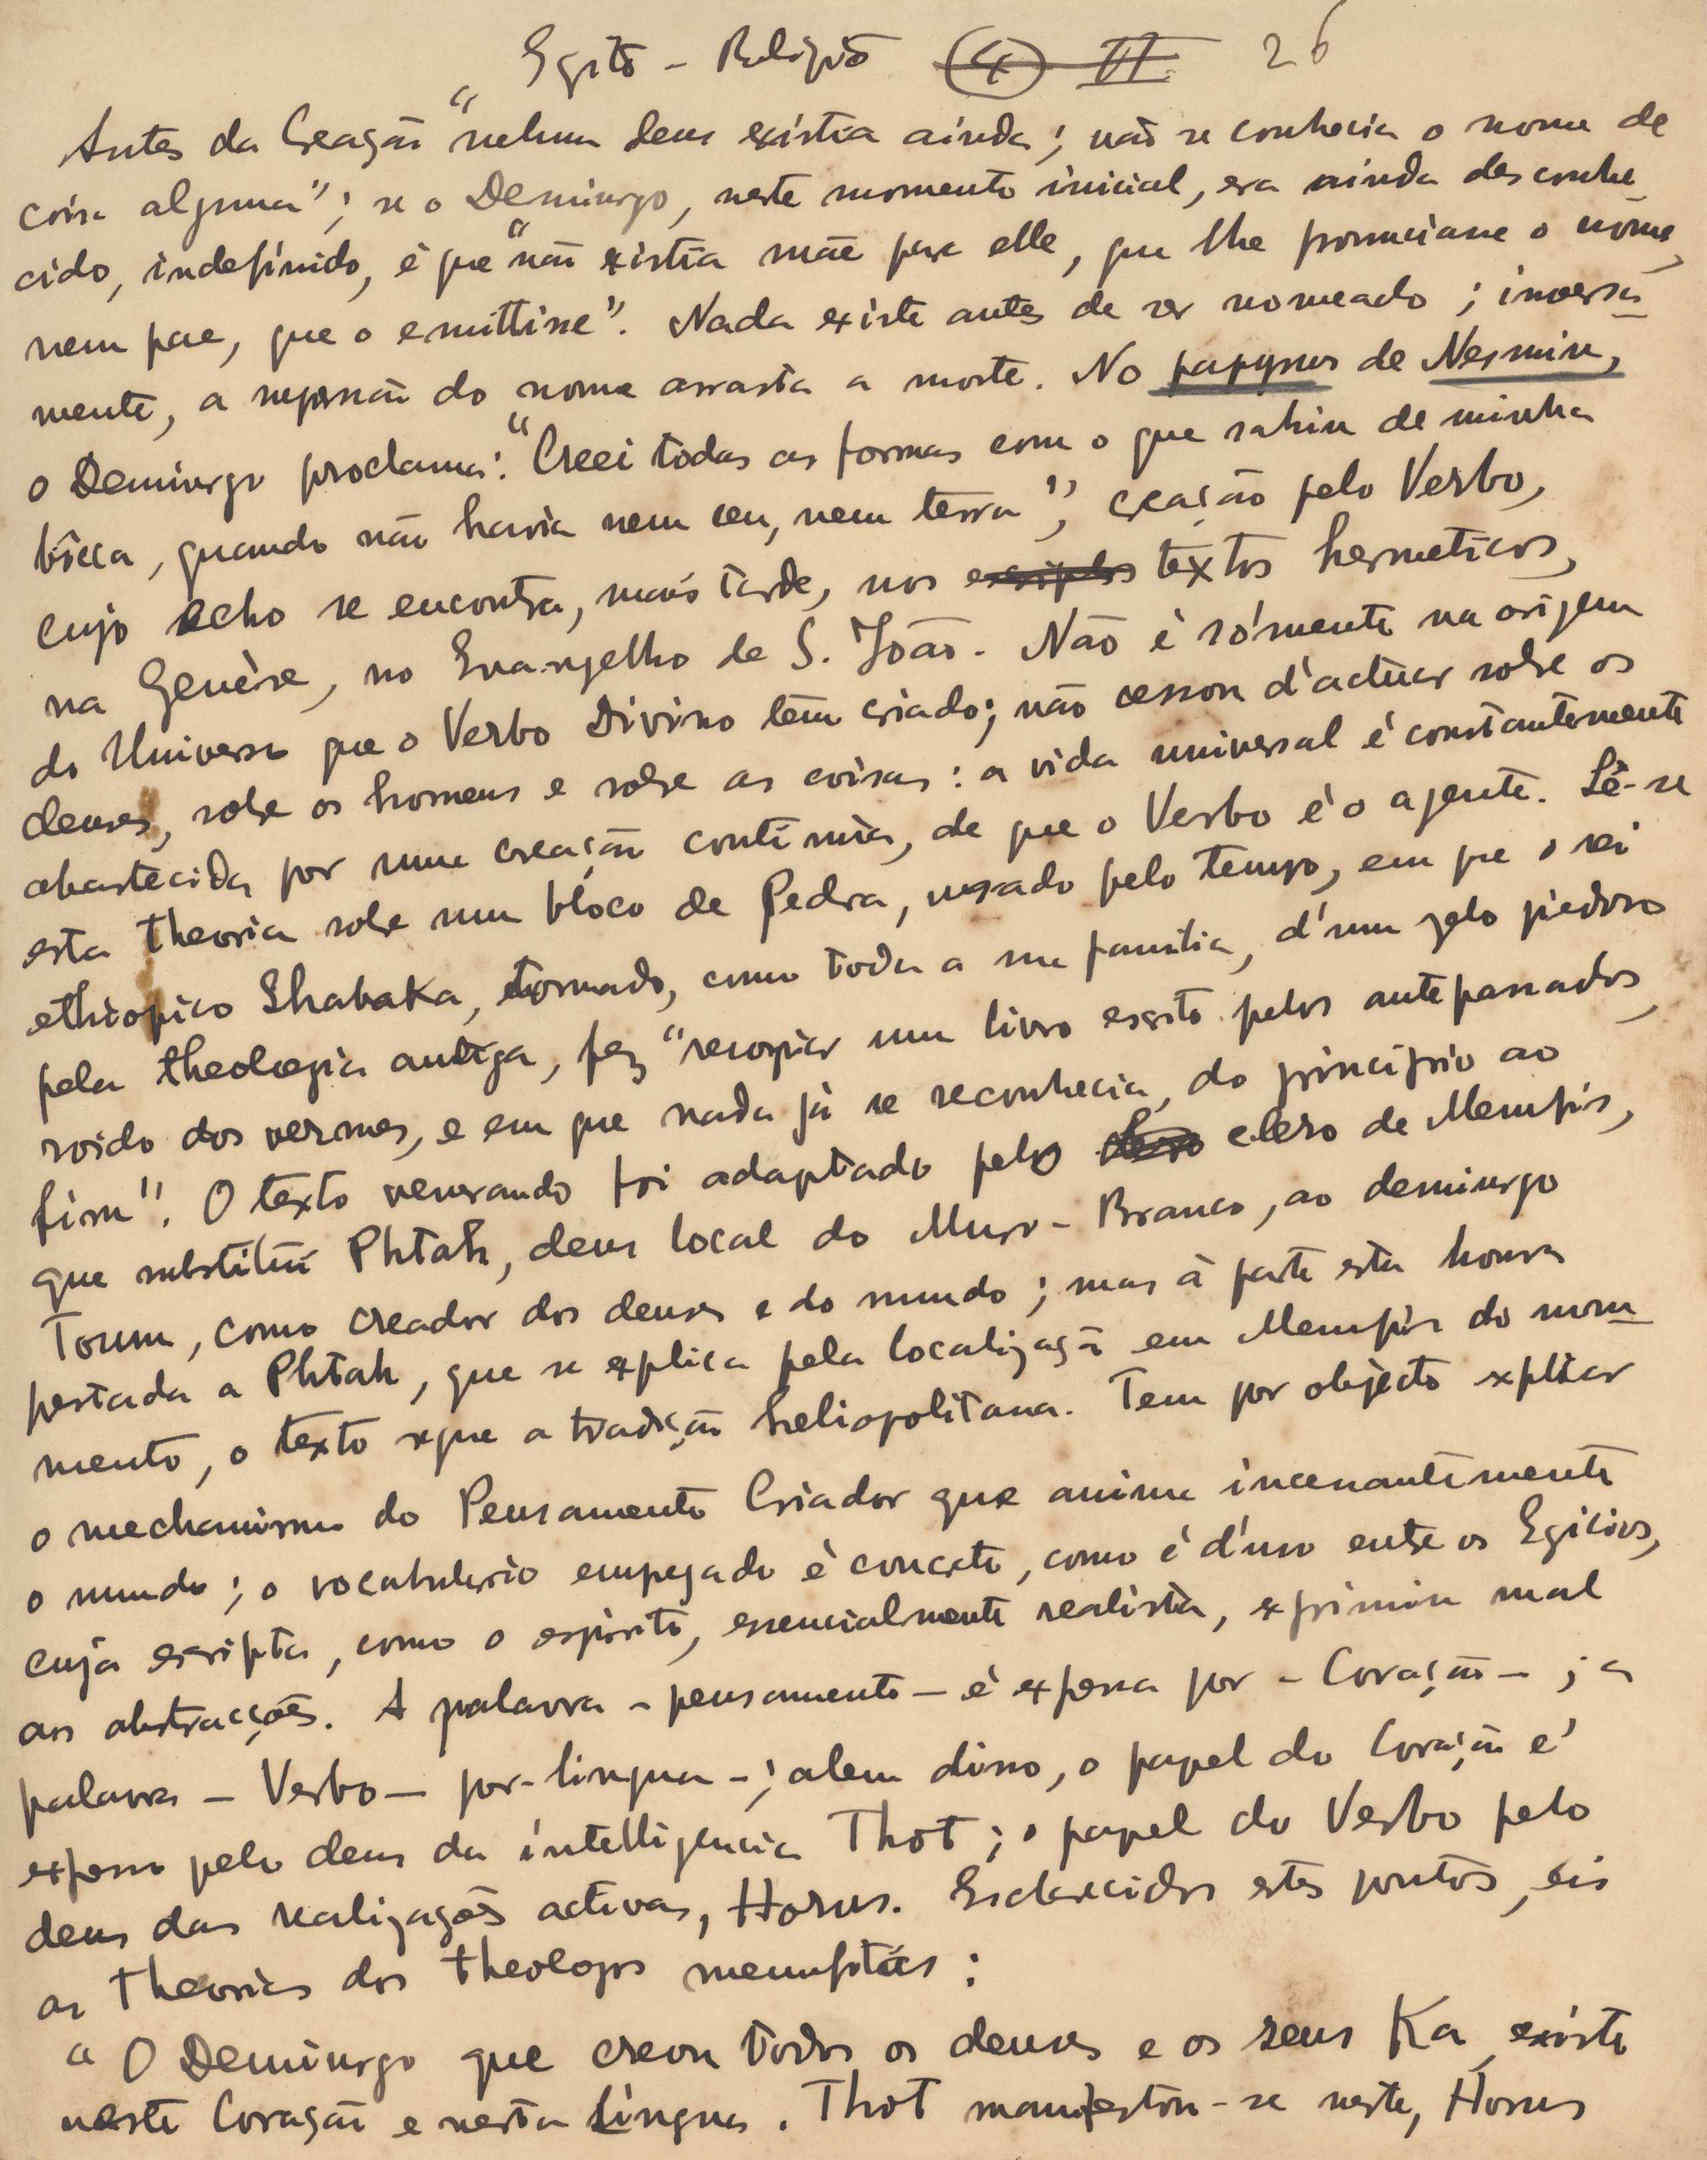 Egito - Religião (4) VI 26
Antes da Creação "nehum deus existia ainda; não se conhecia o nome de
coisa alguma"; se o Demiurgo, neste momento inicial, era ainda desconhe
cido, indefinido, é que "não existia mãe para elle, que lhe pronunciasse o nome,
nem pae, que o emittisse". Nada existe antes de ser nomeado; inversa-
mente, a supressão do nome arrasta a morte. No papyrus de Nesmin,
o Demiurgo proclama: "Creei todas as formas com o que sahiu de minha
bôcca, quando não havia nem ceu, nem terra"; creação pelo Verbo,
cujo echo se encontra, mais tarde, nos textos hermeticos,
na Genèse, no Evangelho de S. João. Não é sómente na origem
do Universo que o Verbo Divino tem criado; não cessou d'actuar sobre os
deuses, sobre os homens e sobre as coisas: a vida universal é constantemente
abastecida por uma creação contínua, de que o Verbo é o agente. Lê-se
esta theoria sobre um bloco de Pedra, usado pelo tempo, em que o rei
ethiopico Shabaka, tomado, como toda a sua familia, d'um zelo piedoso
pela theologia antiga, fez "recopiar um livro escrito pelos antepassados,
roido dos vermes, e em que nada já se reconhecia, do principio ao
fim". O texto venerando foi adaptado pelo clero de Memfis,
que substitui Phtah, deus local do Muro-Branco, ao demiurgo
Toum, como creador dos deuses e do mundo; mas á parte esta honra
prestada a Phtah, que se explica pela localização em Memfis do monu-
mento, o texto segue a tradição heliopolitana. Tem por objecto explicar
o mechanismo do Pensamento Criador que anima incessantemente
o mundo; o vocabulario empregado é concreto, como é d'uso entre os Egicios,
cuja escripta, como o espirito, essencialmente realista, exprimiu mal
as abstracções. A palavra - pensamento - é expressa por - Coração - ; a
palavra - Verbo - por - lingua - ; alem disso, o papel do Coração é
expresso pelo deus da intelligencia Thot; o papel do Verbo pelo
deus das realizações activas, Horus. Esclarecidos estes pontos, eis
as theorias dos theologos memfitas:
"O Demiurgo que creou todos os deuses e os seus Ka, existe
neste Coração e nesta Lingua. Thot manifestou-se neste, Horus